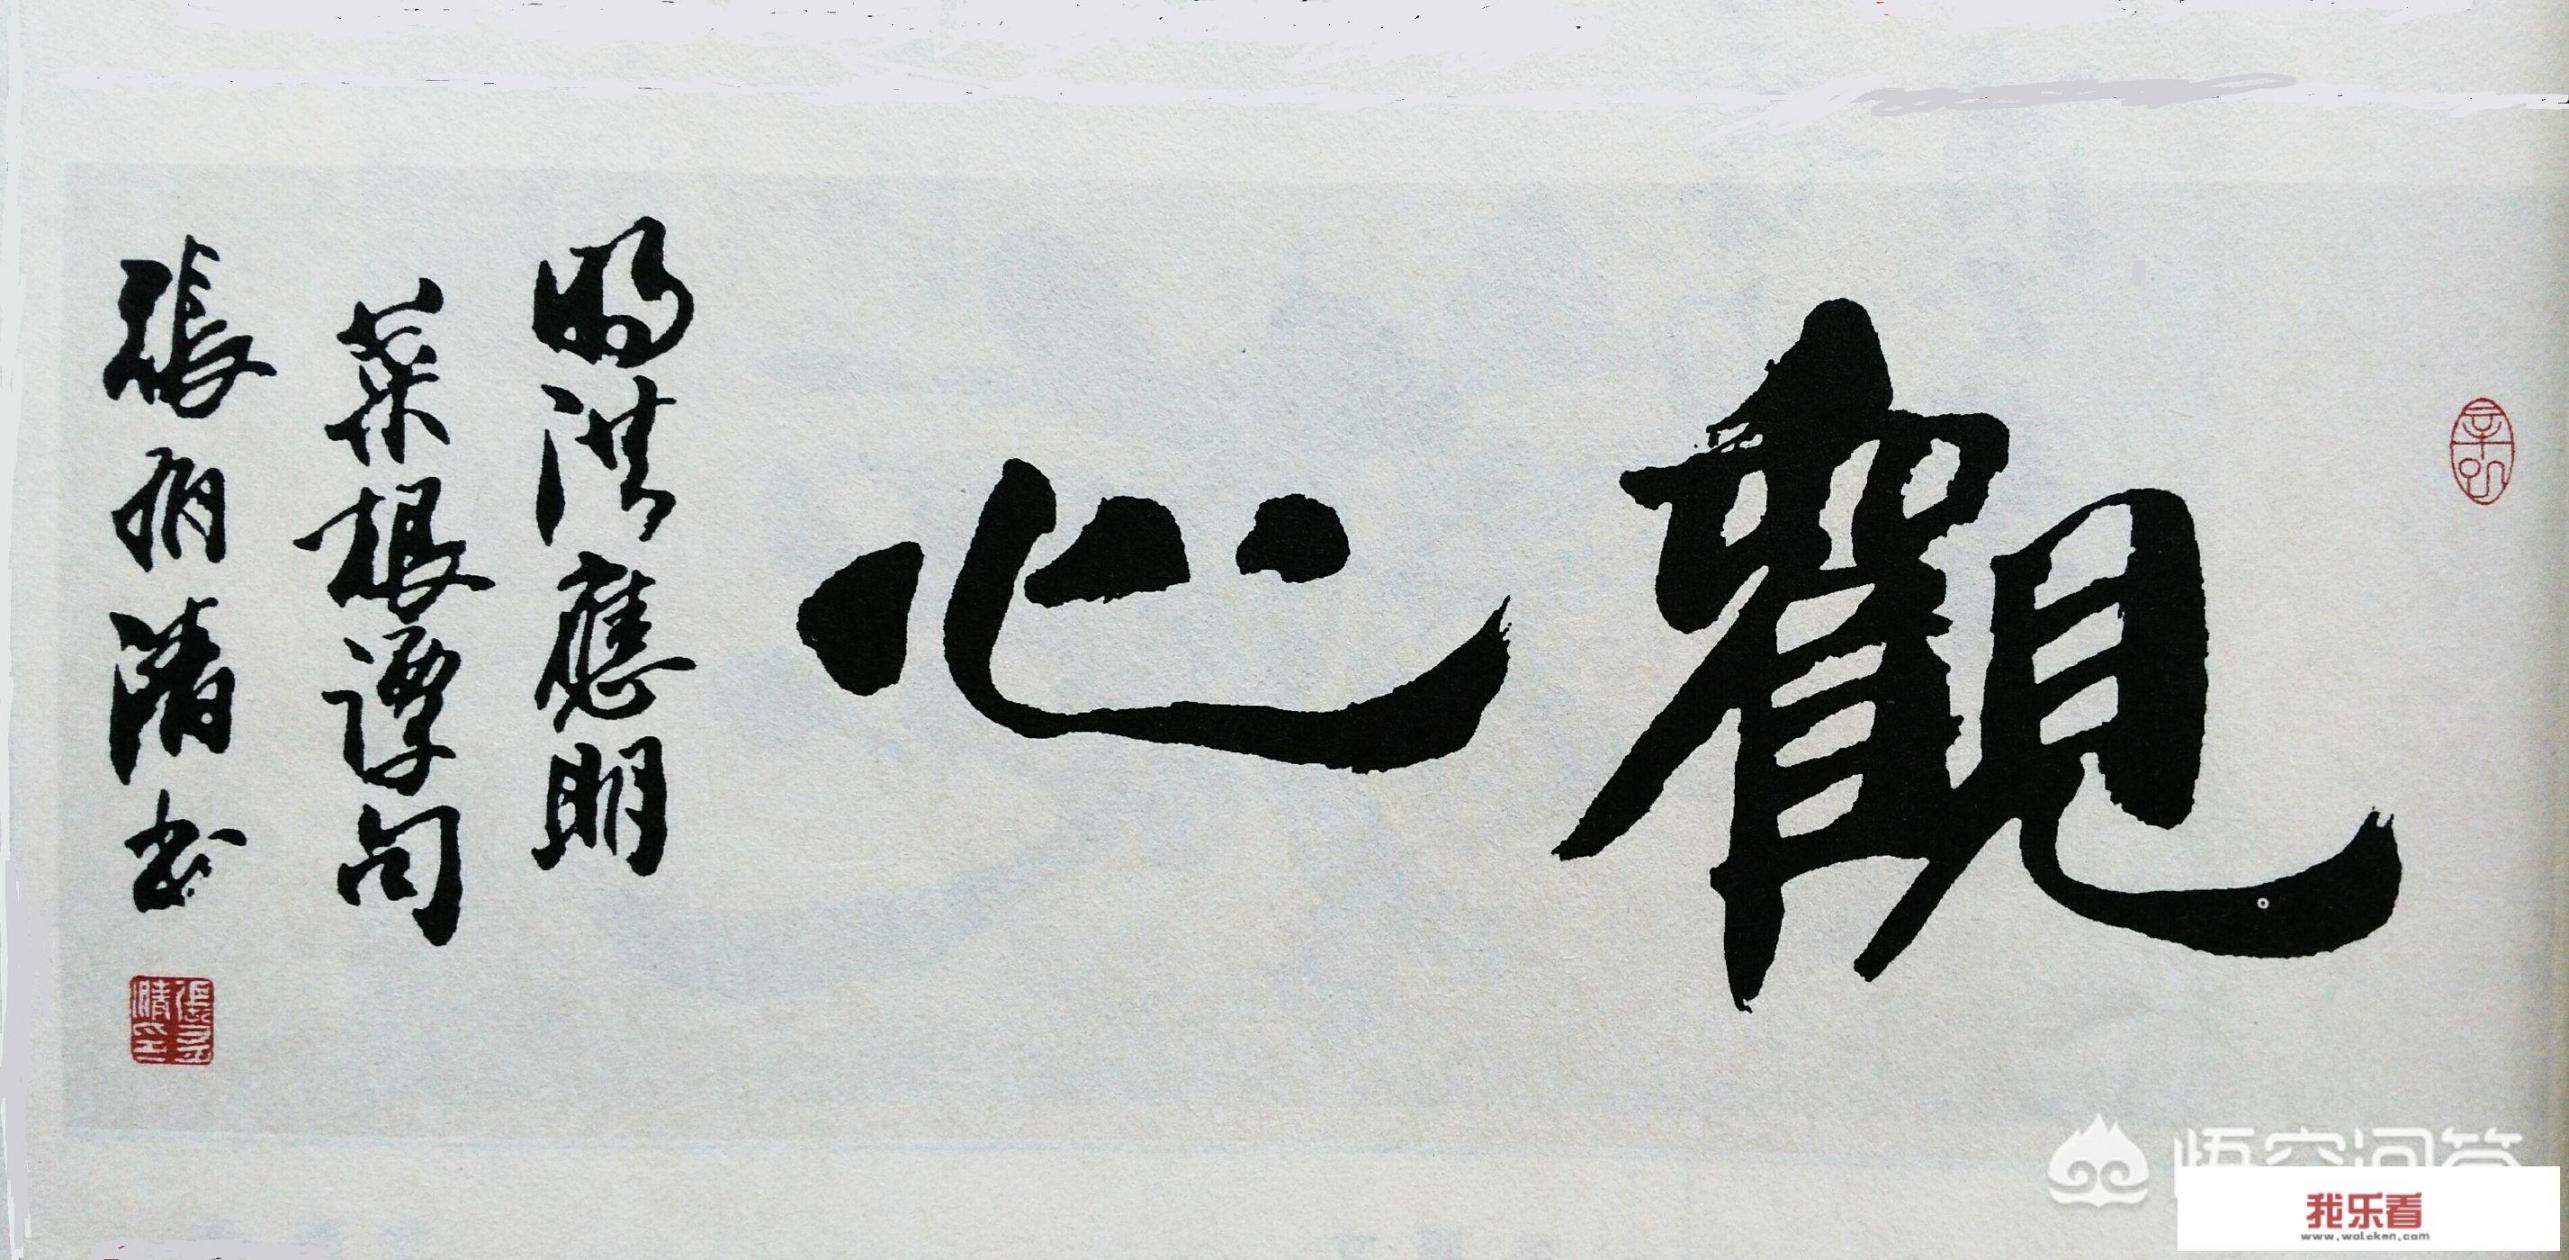 觀心
明洪應明
菜根譚句
張有清书
悟空问答
我乐看
www.woleken.com